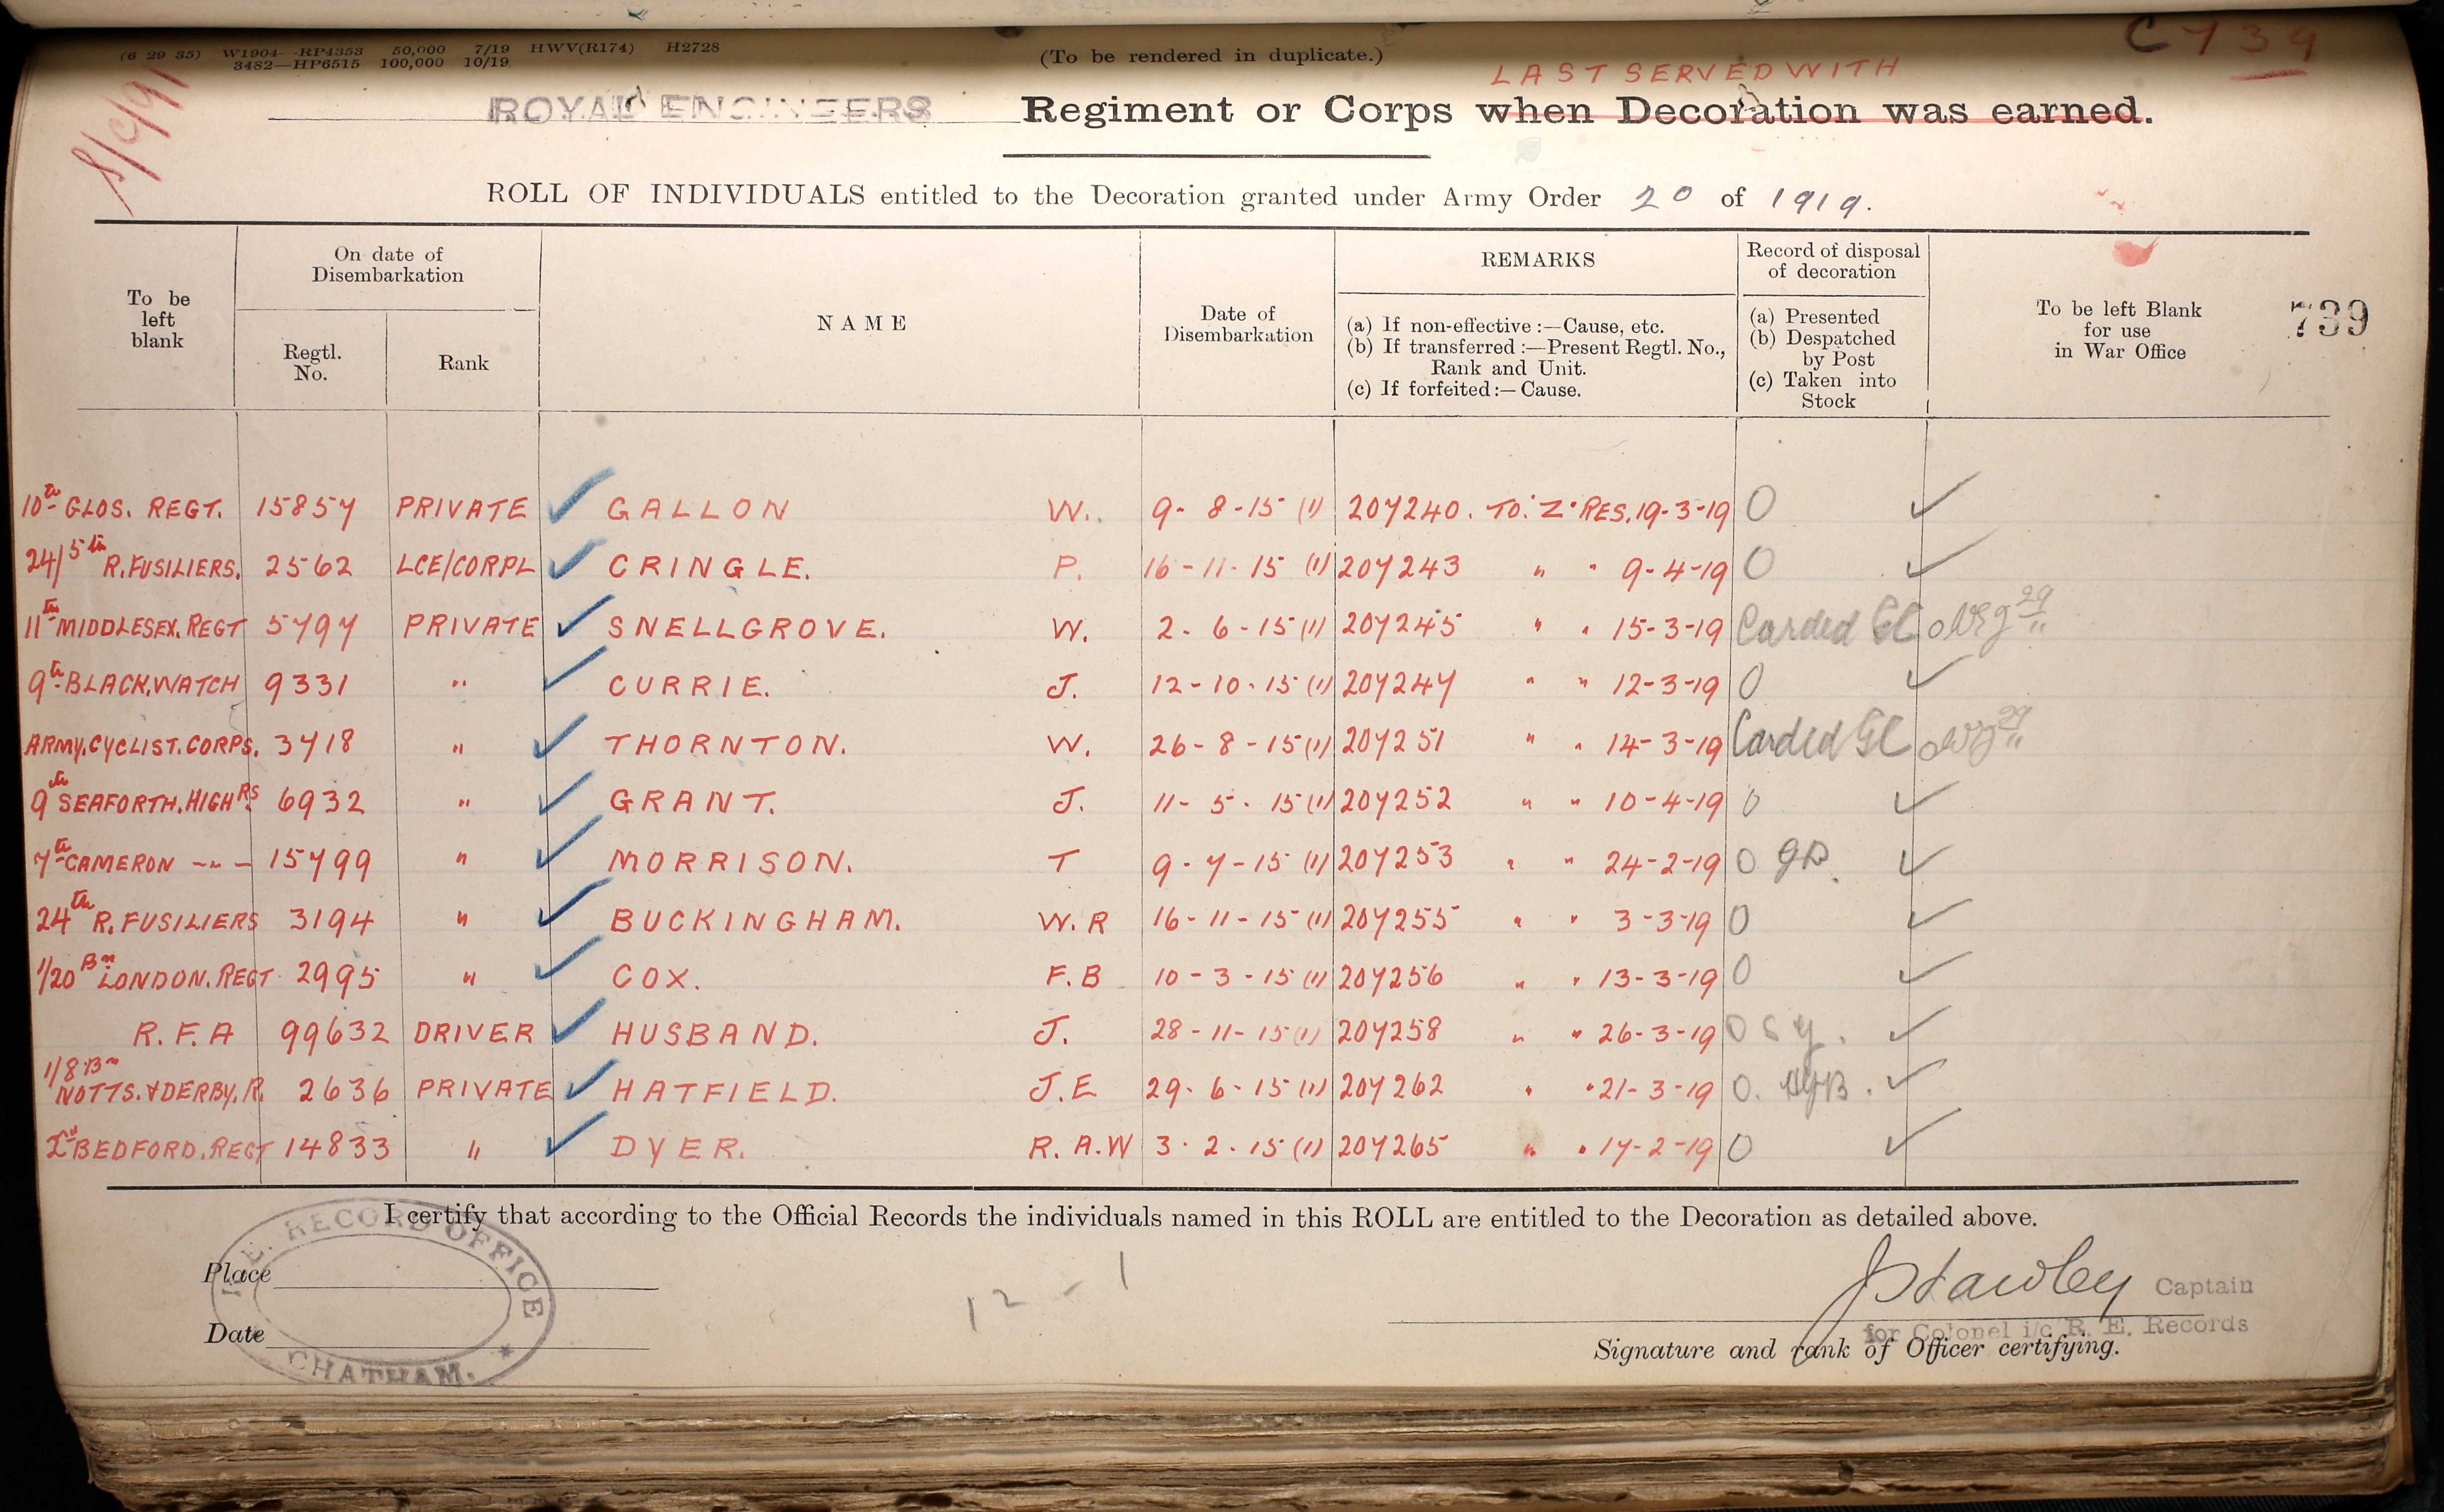 (6 29 35) W1904—RP4353 50,000 7/19 HWV(R174) H2728
3482—HP6515 100,000 10/19
(To be rendered in duplicate.)
C 739
LAST SERVED WITH
ROYAL ENGINEERS Regiment or Corps when Decoration was earned.
ROLL OF INDIVIDUALS entitled to the Decoration granted under Army Order 20 of 1919.
To be left blank
On date of Disembarkation
Regtl. No.
Rank
NAME
Date of Disembarkation
REMARKS
(a) If non-effective :—Cause, etc.
(b) If transferred :—Present Regtl. No., Rank and Unit.
(c) If forfeited :—Cause.
Record of disposal of decoration
(a) Presented
(b) Despatched by Post
(c) Taken into Stock
To be left Blank for use in War Office
739
10th GLOS. REGT. 15857 PRIVATE ✓ GALLON W. 9-8-15 (1) 207240. TO "Z" RES. 19-3-19 O ✓
24/5th R. FUSILIERS. 2562 LCE/CORPL ✓ CRINGLE. P. 16-11-15 (1) 207243 " " 9-4-19 O ✓
11th MIDDLESEX. REGT 5797 PRIVATE ✓ SNELLGROVE. W. 2-6-15 (1) 207245 " " 15-3-19 Carded GC
9th BLACK. WATCH 9331 " ✓ CURRIE. J. 12-10-15 (1) 207247 " " 12-3-19 O ✓
ARMY. CYCLIST. CORPS. 3718 " ✓ THORNTON. W. 26-8-15 (1) 207251 " " 14-3-19 Carded GC
9th SEAFORTH. HIGHRS 6932 " ✓ GRANT. J. 11-5-15 (1) 207252 " " 10-4-19 O ✓
7th CAMERON -"- 15799 " ✓ MORRISON. T 9-7-15 (1) 207253 " " 24-2-19 O ✓
24th R. FUSILIERS 3194 " ✓ BUCKINGHAM. W.R 16-11-15 (1) 207255 " " 3-3-19 O ✓
1/20 Bn LONDON. REGT 2995 " ✓ COX. F.B 10-3-15 (1) 207256 " " 13-3-19 O ✓
R.F.A 99632 DRIVER ✓ HUSBAND. J. 28-11-15 (1) 207258 " " 26-3-19 O ✓
1/8 Bn NOTTS. & DERBY. R. 2636 PRIVATE ✓ HATFIELD. J.E 29-6-15 (1) 207262 " " 21-3-19 O. ✓
2nd BEDFORD. REGT 14833 " ✓ DYER. R.A.W 3-2-15 (1) 207265 " " 17-2-19 O ✓
I certify that according to the Official Records the individuals named in this ROLL are entitled to the Decoration as detailed above.
R.E. RECORD OFFICE
CHATHAM.
Place
Date
12 - 1
Captain
for Colonel i/c R. E. Records
Signature and rank of Officer certifying.